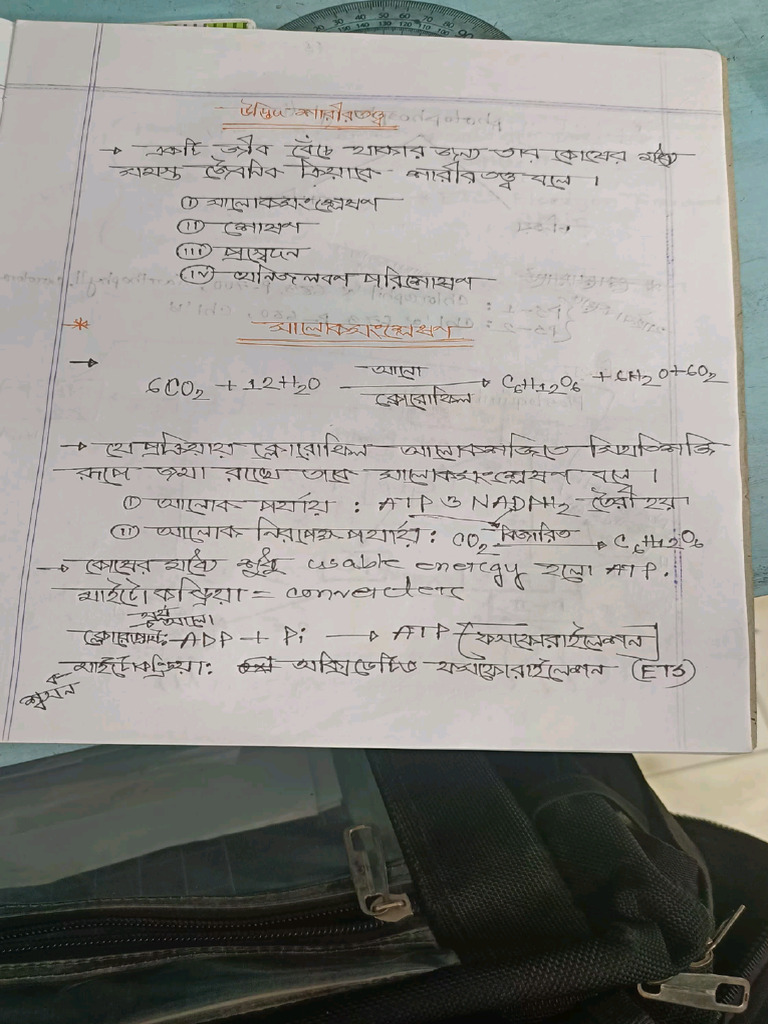 উদ্ভিদ শারীরতত্ত্ব
→ একটি জীব বেঁচে থাকার জন্য তার কোষের মধ্যে
সমস্ত জৈবনিক ক্রিয়াকে শারীরতত্ত্ব বলে।
(i) সালোকসংশ্লেষণ
(ii) শোষণ
(iii) প্রস্বেদন
(iv) খনিজলবণ পরিশোষণ
* সালোকসংশ্লেষণ
→ 6CO₂ + 12H₂O আলো ক্লোরোফিল → C₆H₁₂O₆ + 6H₂O + 6O₂
→ যে প্রক্রিয়ায় ক্লোরোফিল আলোকশক্তিতে স্থিতিশক্তি
রূপে জমা রাখে তাকে সালোকসংশ্লেষণ বলে।
(i) আলোক পর্যায় : ATP ও NADPH₂ তৈরী হয়
(ii) আলোক নিরপেক্ষ পর্যায় : CO₂ বিজারিত → C₆H₁₂O₆
→ কোষের মধ্যে শুধু usable energy হলো ATP.
মাইটোকন্ড্রিয়া = converters
সূর্য আলো
ADP + Pi → ATP ফসফোরাইলেশন
মাইটোকন্ড্রিয়া: অক্সিডেটিভ ফসফোরাইলেশন (ETS)
শ্বসন